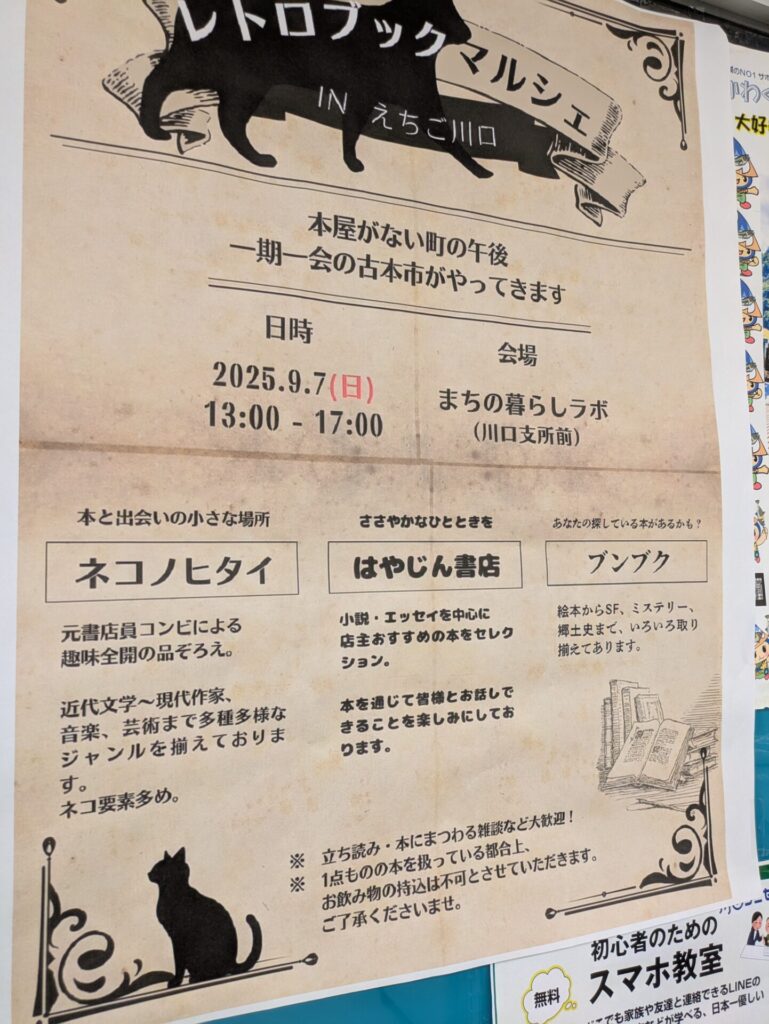 レトロブックマルシェ
IN えちご川口
本屋がない町の午後
一期一会の古本市がやってきます
日時
2025.9.7(日)
13:00 - 17:00
会場
まちの暮らしラボ
(川口支所前)
本と出会いの小さな場所
ネコノヒタイ
元書店員コンビによる
趣味全開の品ぞろえ。
近代文学〜現代作家、
音楽、芸術まで多種多様な
ジャンルを揃えておりま
す。
ネコ要素多め。
ささやかなひとときを
はやじん書店
小説・エッセイを中心に
店主おすすめの本をセレク
ション。
本を通じて皆様とお話しで
きることを楽しみにしてお
ります。
あなたの探している本があるかも?
ブンブク
絵本からSF、ミステリー、
郷土史まで、いろいろ取り
揃えてあります。
※ 立ち読み・本にまつわる雑談など大歓迎!
※ 1点ものの本を扱っている都合上、
お飲み物の持込は不可とさせていただきます。
ご了承くださいませ。
のNO1 サポ
かわ
大好
初心者のための
スマホ教室
無料
でも家族や友達と連絡できるLINEの
が学べる、日本一優しい